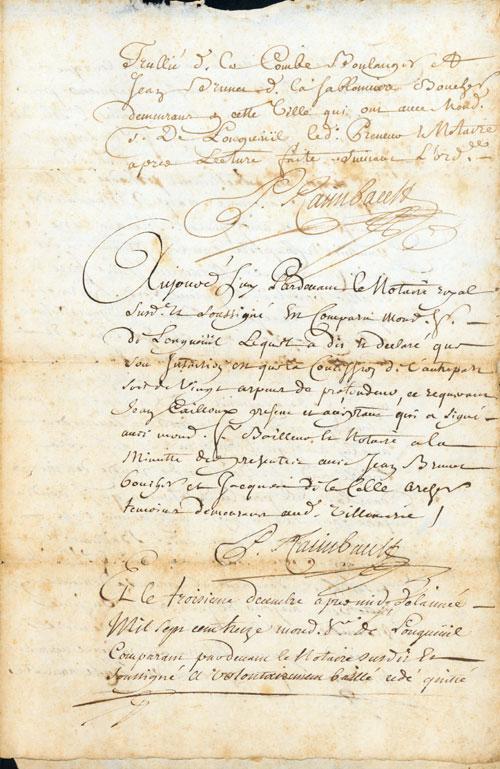 Trullié d. La Combe Boulanger et
Jean Brunet d. La Sablonniere Boucher
demeurans en cette Ville qui ont avec mond.
S. De Longueüil led. Preneur & Notaire
apres Lecture faite suivant L'ord.
P. Raimbault
Aujourd'huy Pardevant le Notaire royal
susd. et soussigné Est Comparu mond. Sr.
de Longueüil Lequel a dit et declaré que
son Intention est que la Concession de l'autre part
soit de Vingt arpens de profondeur, ce requerant
Jean Cailloux present et acceptant qui a signé
avec mond. Sr. Bailleur, le Notaire a la
Minutte des presentes avec Jean Brunet
boucher et Jacques de le Celle archer
temoins demeurans aud. Villemarie
P. Raimbault
Et le troisieme decembre apres midy de l'année
Mil sept cent treize mond. Sr. de Longueüil
Comparant pardevant le Notaire susdit et
soussigné a volontairement baillé cedé quitté